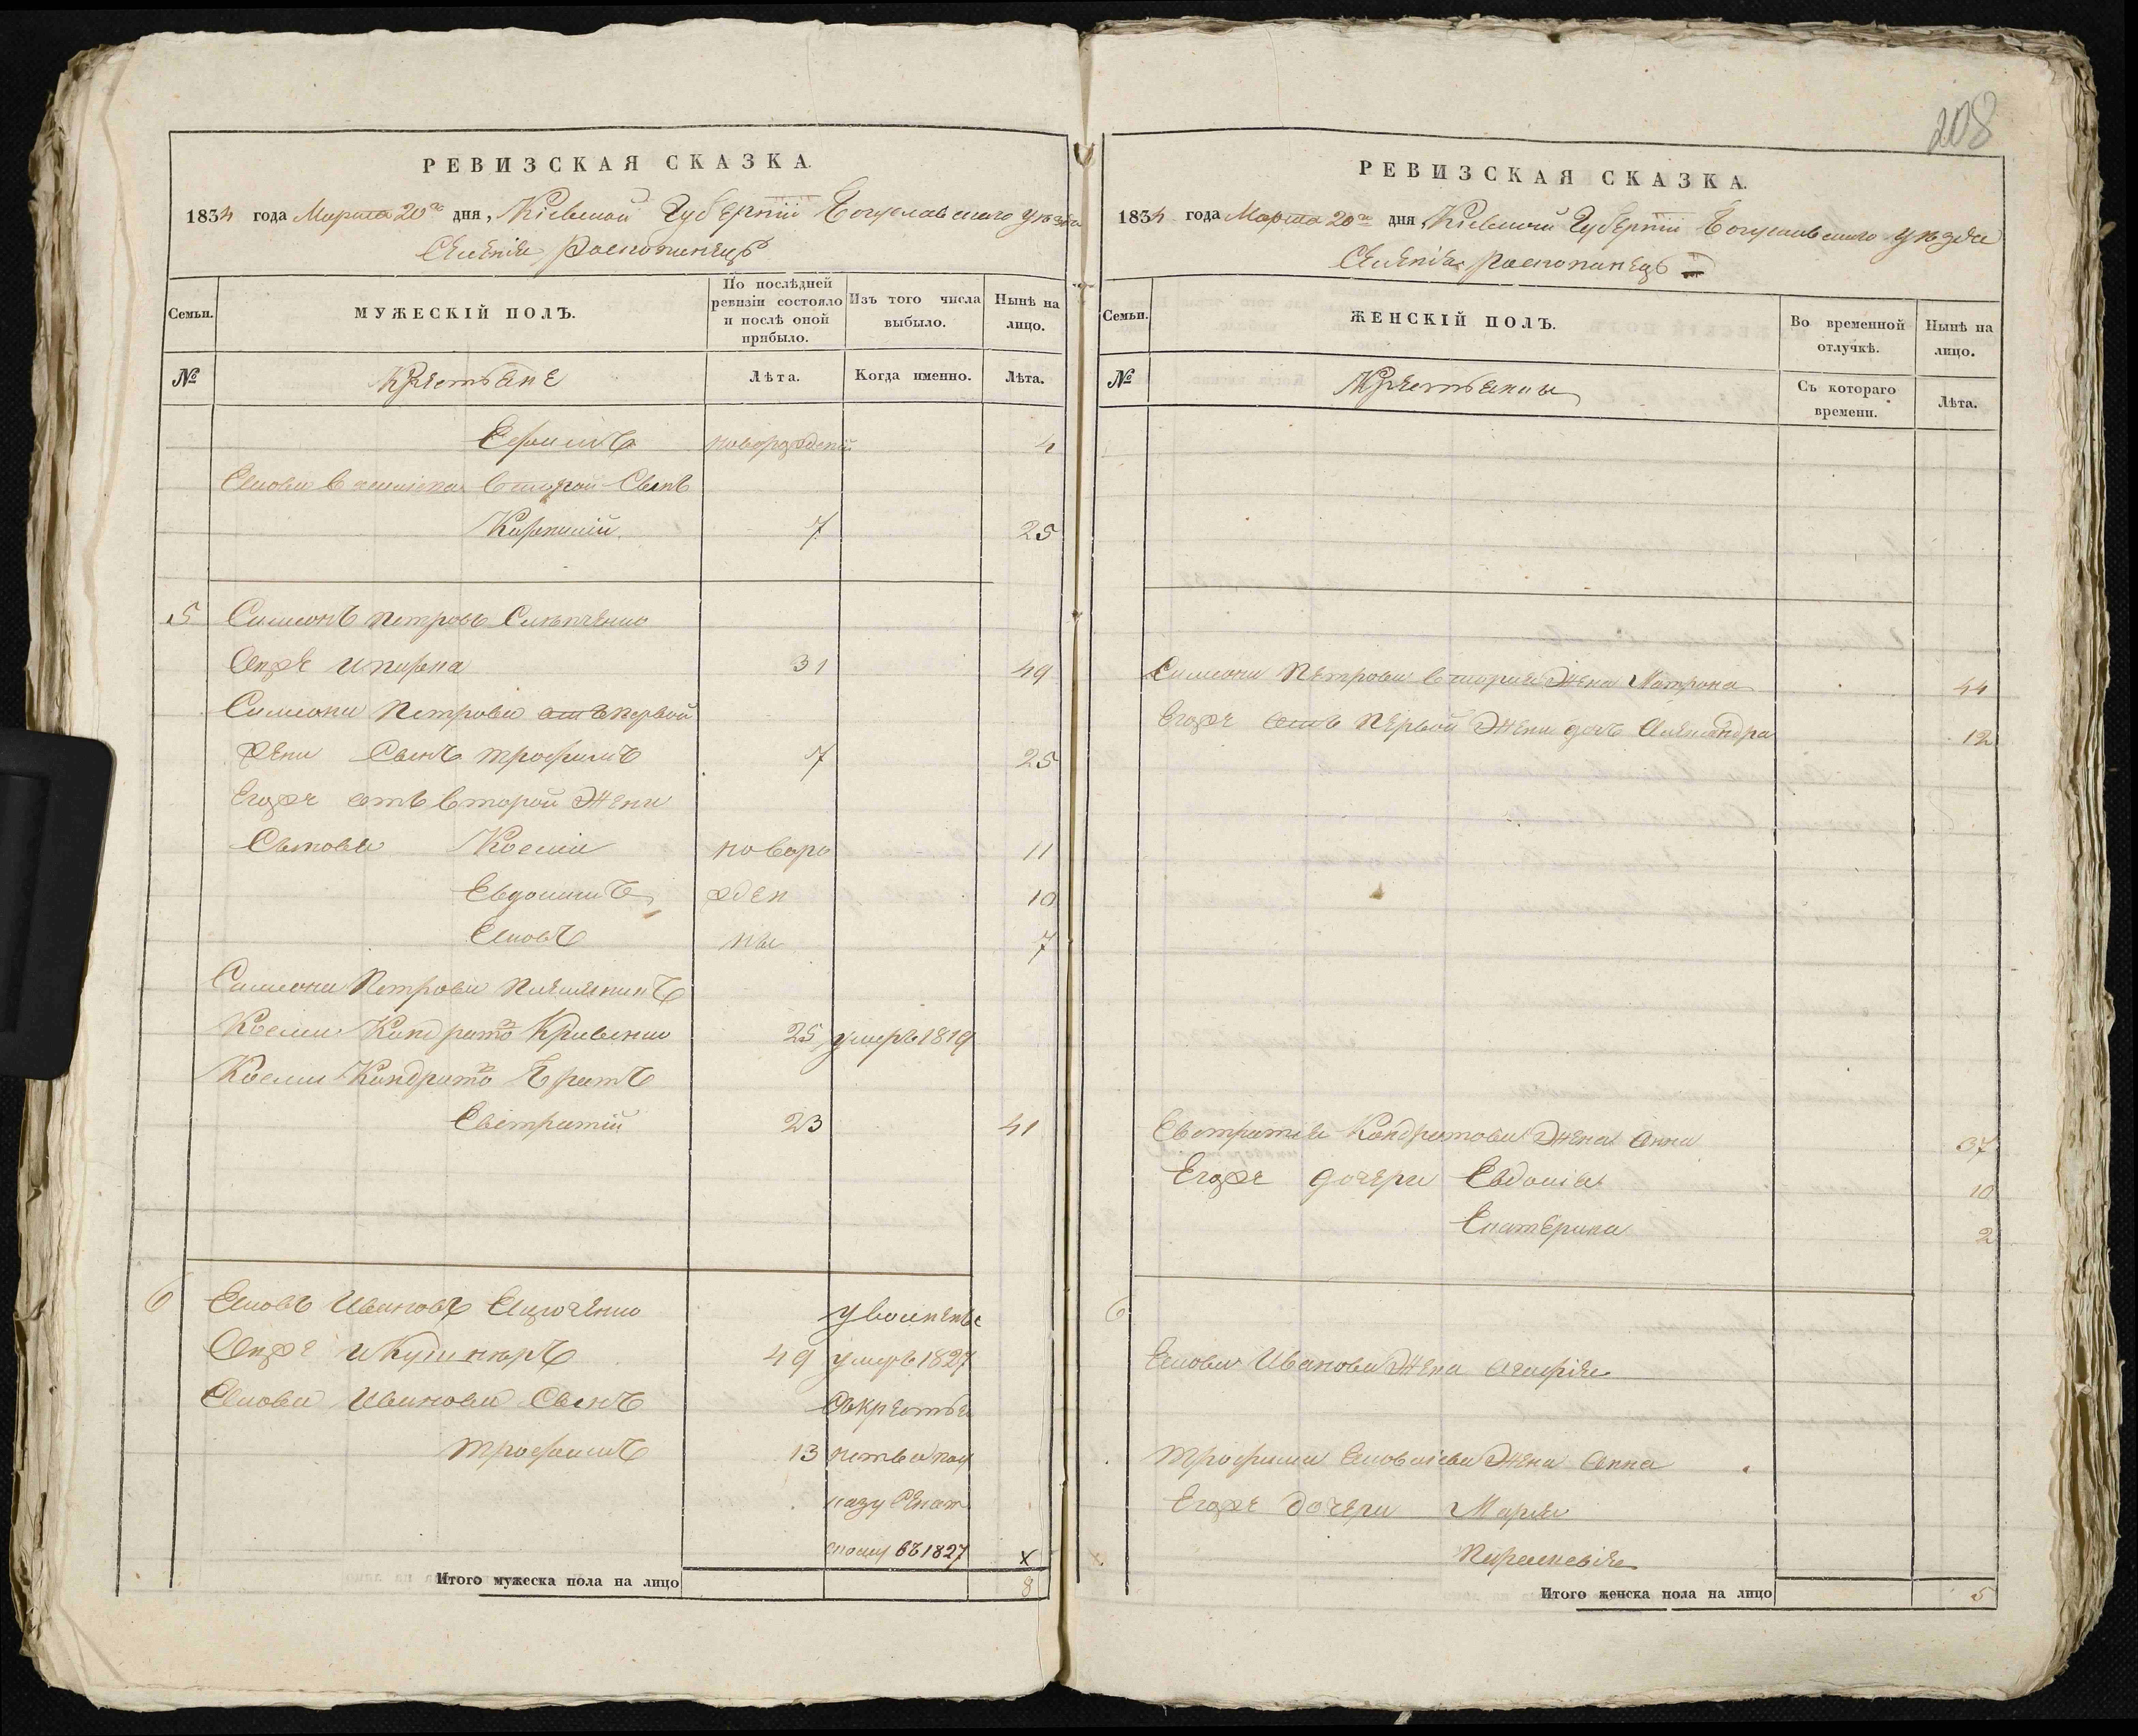 208
РЕВИЗСКАЯ СКАЗКА
1834 года Марта 20го дня, Кіевской Губерніи Богуславскаго уѣзда
Селенія Роскопанецъ
Семьи.
МУЖЕСКІЙ ПОЛЪ.
По послѣдней ревизіи состояло и послѣ оной прибыло.
Изъ того числа выбыло.
Нынѣ на лицо.
№
Крестьяне
Лѣта.
Когда именно.
Лѣта.
Ефимъ новорожденый 4
Якова второй Сынъ
7 25
5 Симеонъ Петровъ
Онже 31 49
Симеона Петрова отъ первой
жены Сынъ Трофимъ 7 25
Егоже отъ второй жены
Сыновья Косма новоро 11
Евдокимъ жден 10
Яковъ ны 7
Симеона Петрова племяникъ
Косма Кондрато Кривенко 25 умеръ 1819
Космы Кондрато Братъ
Евстратій 23 41
6 Яковъ Ивановъ
Онже 49 умеръ 1827
Якова Иванова Сынъ
Трофимъ 13
въ 1827 х
Итого мужеска пола на лицо 8
РЕВИЗСКАЯ СКАЗКА.
1834 года Марта 20го дня Кіевской Губерніи Богуславскаго уѣзда
Селенія Роскопанецъ
Семьи.
ЖЕНСКІЙ ПОЛЪ.
Во временной отлучкѣ.
Нынѣ на лицо.
№
Крестьянки
Съ котораго времени.
Лѣта.
Симеона Петрова вторая Жена Матрона 44
Егоже отъ первой Жены дочь Александра 12
Евстратія Кондратова Жена Анна 37
Егоже дочери Евдокія 10
Екатерина 2
6
Якова Иванова Жена Агафія
Трофима Яковлева Жена Анна
Егоже дочери Марія
Параскевія
Итого женска пола на лицо 5